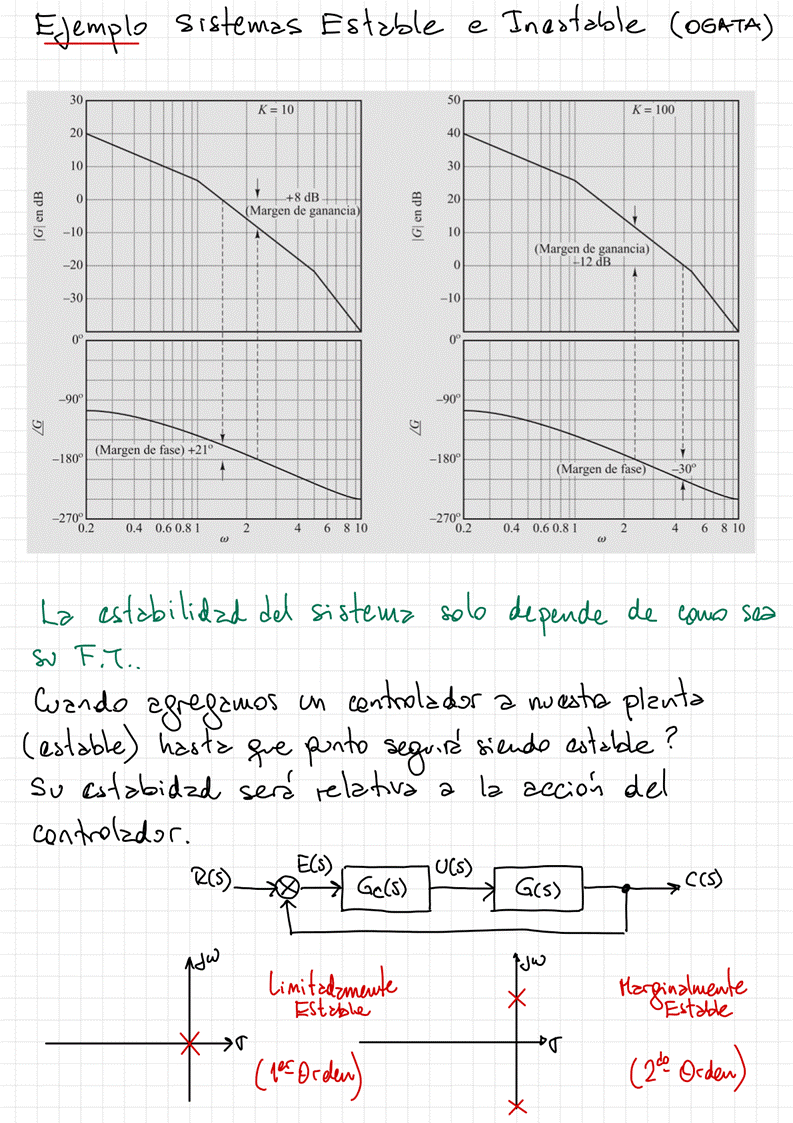 Ejemplo Sistemas Estable e Inestable (OGATA)
30
20
10
0
−10
−20
−30
|G| en dB
K = 10
+8 dB
(Margen de ganancia)
0°
−90°
−180°
−270°
∠G
(Margen de fase) +21°
0.2 0.4 0.6 0.8 1 2 4 6 8 10
ω
50
40
30
20
10
0
−10
|G| en dB
K = 100
(Margen de ganancia)
−12 dB
0°
−90°
−180°
−270°
∠G
(Margen de fase) −30°
0.2 0.4 0.6 0.8 1 2 4 6 8 10
ω
La estabilidad del sistema solo depende de como sea
su F.T..
Cuando agregamos un controlador a nuestra planta
(estable) hasta que punto seguirá siendo estable?
Su estabidad será relativa a la acción del
controlador.
R(s) E(s) Gc(s) U(s) G(s) C(s)
jω
σ
Limitadamente
Estable
(1er Orden)
jω
σ
Marginalmente
Estable
(2do Orden)